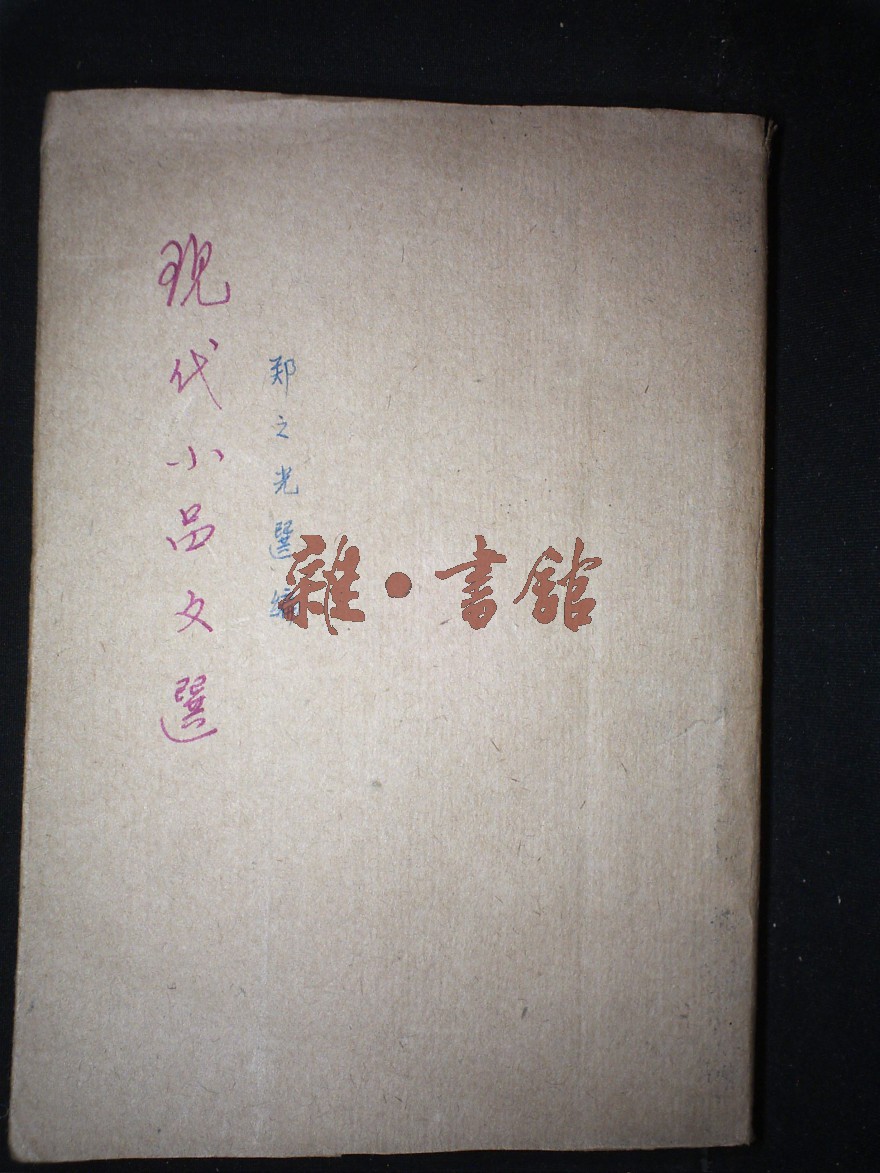 现代小品文選
郑之光選编
雜·書館